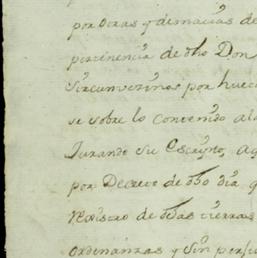 por otras y demacias de
pertinencia de dho Don
Sircunverinos por huec
se sobre lo Contenido a
Jurando su Escripto, a
por Decreto de dho dia, q
Rexistro de dhas tierras
ordenanzas y sin per